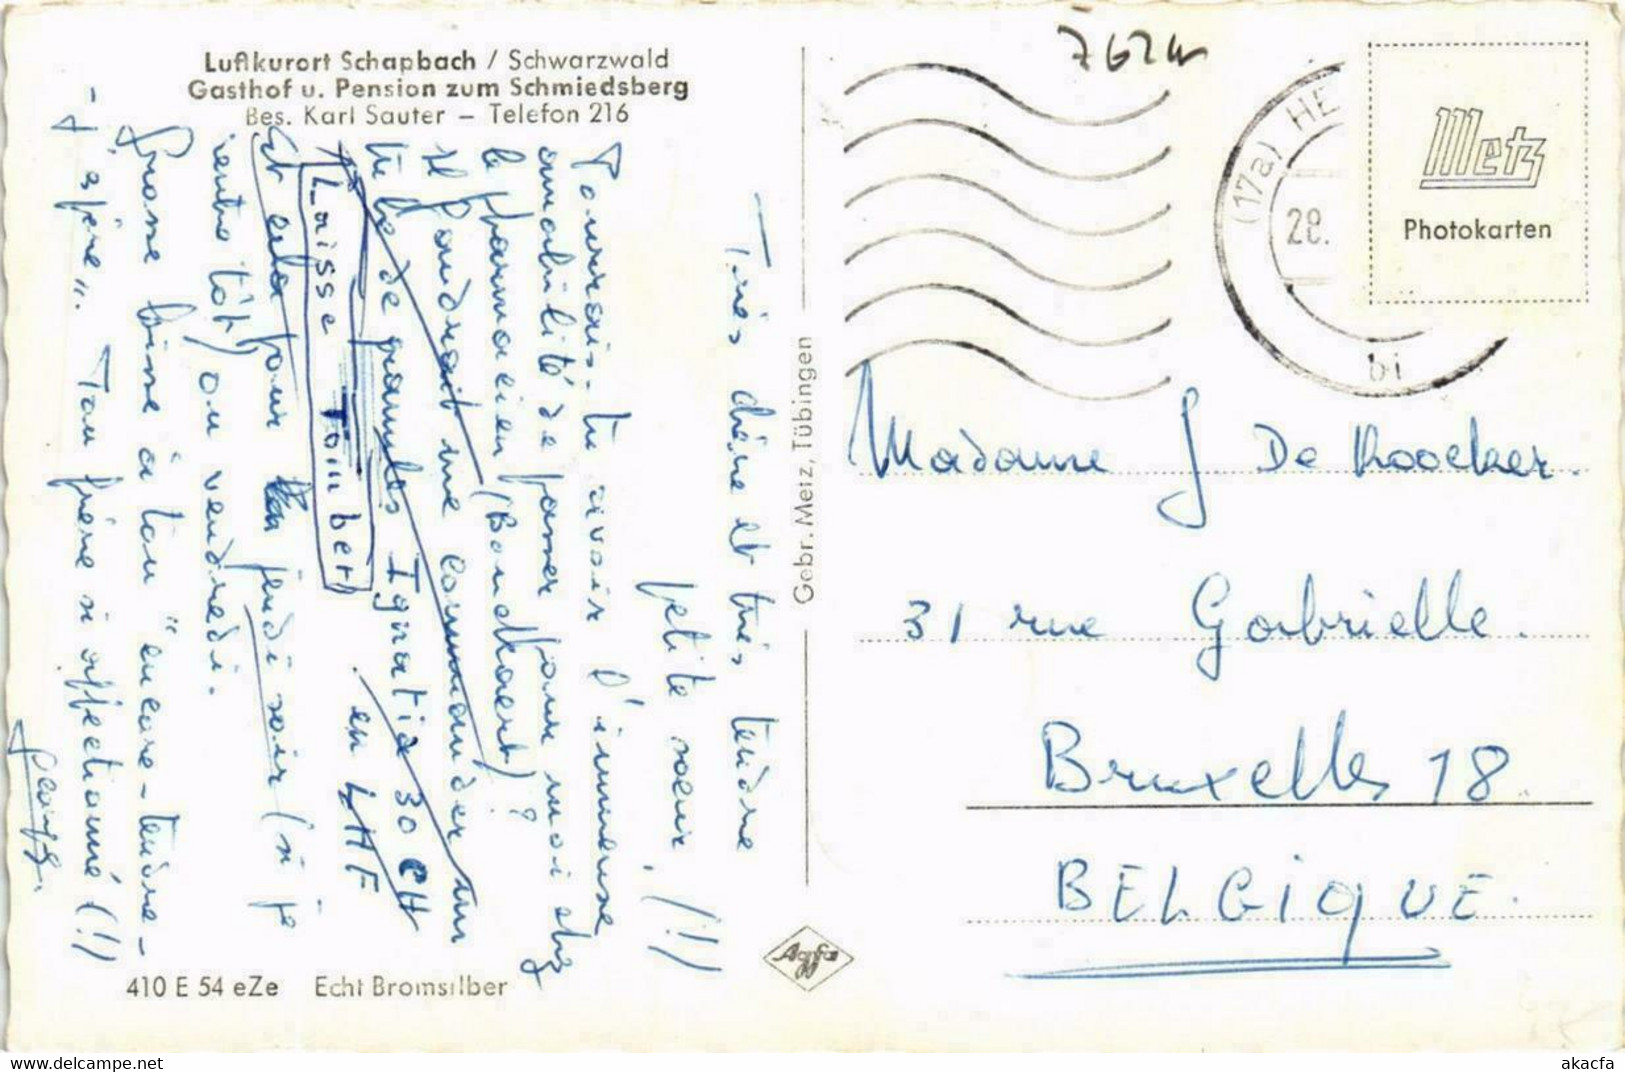 Luftkurort Schapbach / Schwarzwald
Gasthof u. Pension zum Schmiedsberg
Bes. Karl Sauter – Telefon 216
Très chère et très tendre
petite soeur, (!)
Pourrais-tu avoir l'immense
amabilité de passer pour moi chez
le pharmacien (Bonckaert)?
Il faudrait me commander un
tube de granules Ignatia 30 CH
en 4 HF
Laisse tomber
Et cela pour jeudi soir (si je
rentre tôt) ou vendredi.
Grosse bise à ton "encore-tendre-
j'espère". Ton frère si affectionné (!)
410 E 54 eZe Echt Bromsilber
Gebr. Metz, Tübingen
Agfa
(17a) HE
28.
bi
Metz
Photokarten
Madame J De Koocker.
31 rue Gabrielle.
Bruxelles 18
BELGIQUE.
akacfa